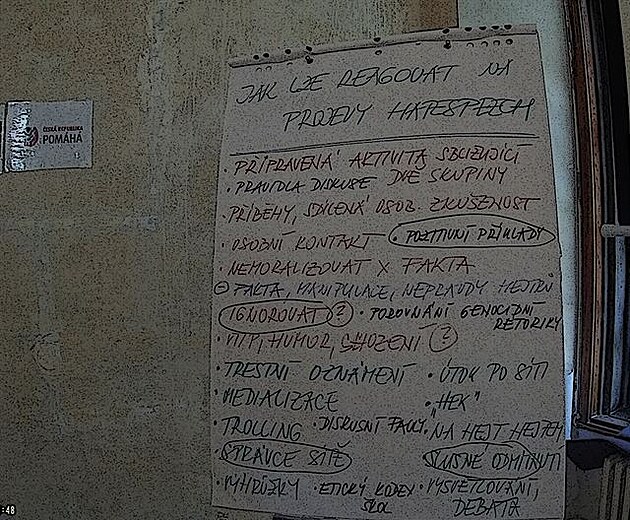 ČESKÁ REPUBLIKA
POMÁHÁ
JAK LZE REAGOVAT NA
PROJEVY HATESPEECH
• PŘIPRAVENÁ AKTIVITA SBLIŽUJÍCÍ
• PRAVIDLA DISKUSE DVĚ SKUPINY
• PŘÍBĚHY, SDÍLENÁ OSOB. ZKUŠENOST
• OSOBNÍ KONTAKT • POZITIVNÍ PŘÍKLADY
• NEMORALIZOVAT X FAKTA
⊖ FAKTA, MANIPULACE, NEPRAVDY HEJTRŮ
IGNOROVAT ? • POROVNÁNÍ GENOCIDNÍ
RÉTORIKY
• VTIP, HUMOR, SHOZENÍ ?
• TRESTNÍ OZNÁMENÍ • ÚTOK PO SÍTI
• MEDIALIZACE • "HEK"
• TROLLING • DISKUSNÍ FAULY • NA HEJT HEJTEM
SPRÁVCE SÍTĚ SLUŠNÉ ODMÍTNUTÍ
• VÝHRŮŽKY • ETICKÝ KODEX • VYSVĚTLOVÁNÍ,
ŠKOL DEBATA
:48